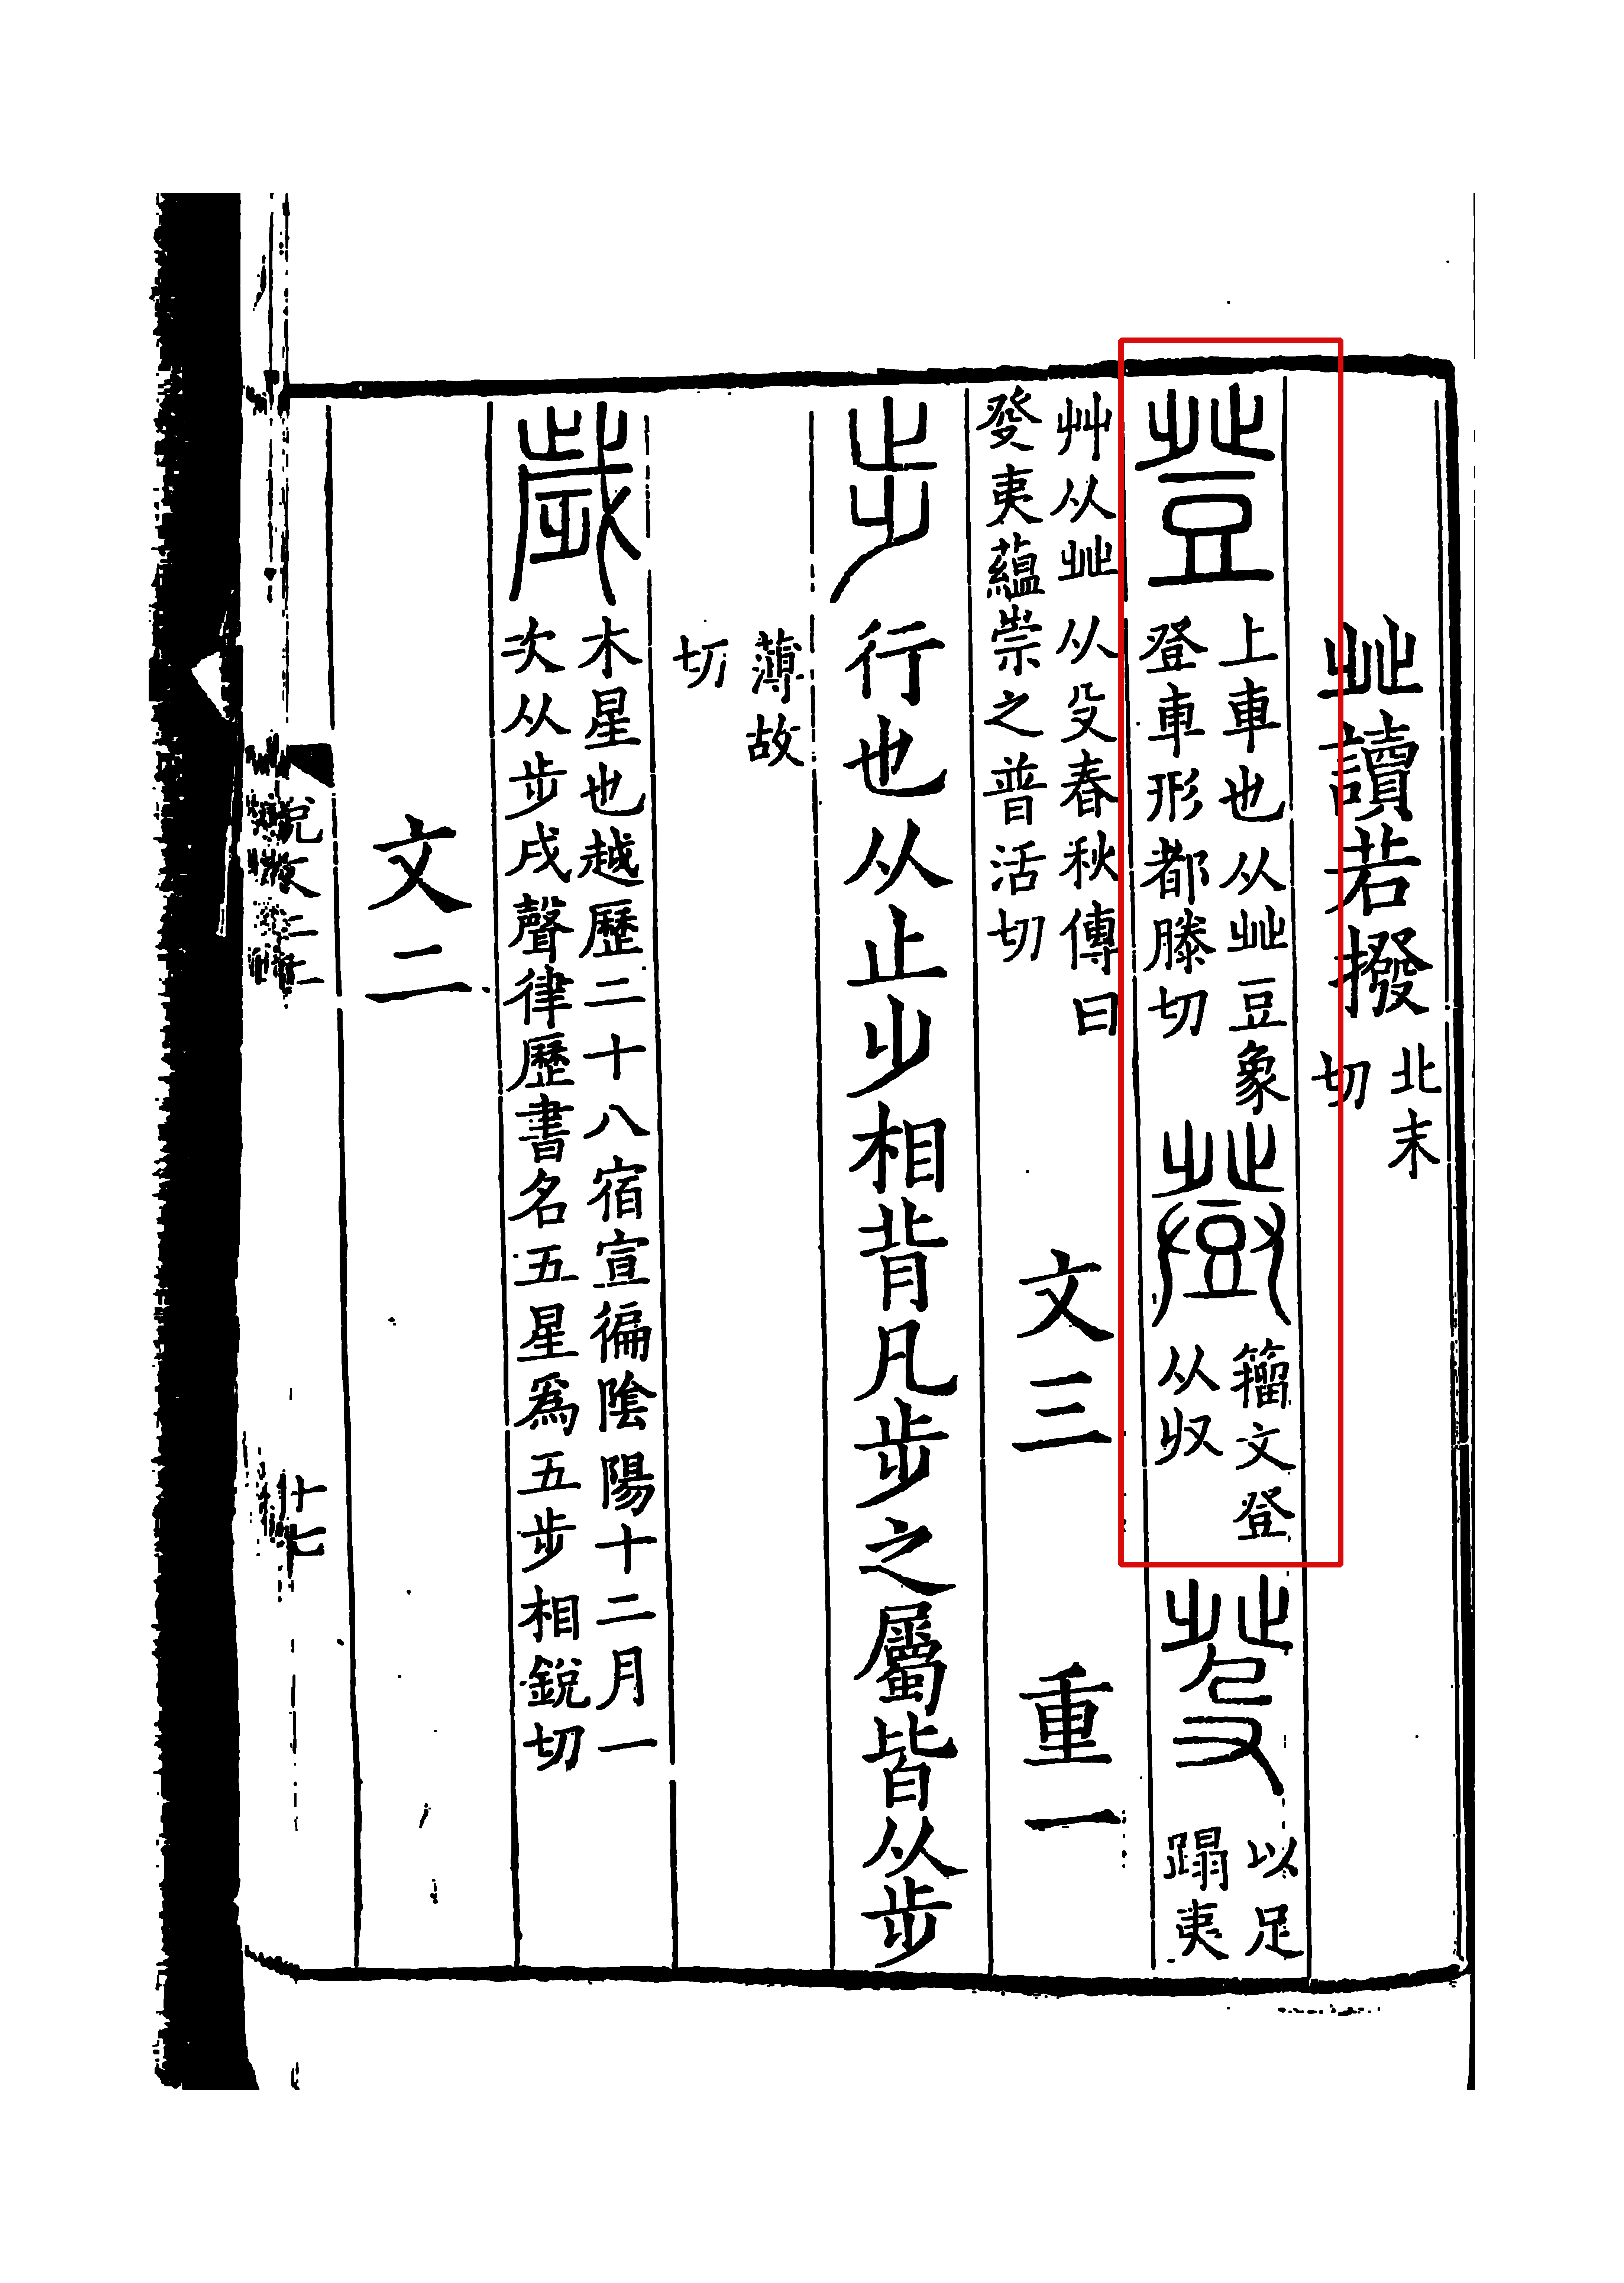 癶讀若撥北末
切
登上車也从癶豆象
登車形都滕切
𤼷籒文登
从収
癹以足
蹋夷
艸从癶从殳春秋傳曰
癹夷蘊崇之普活切
文三 重一
步行也从止𣥂相背凡步之屬皆从步
薄故
切
歲木星也越歷二十八宿宣徧陰陽十二月一
次从步戌聲律歷書名五星爲五步相銳切
文二
十七